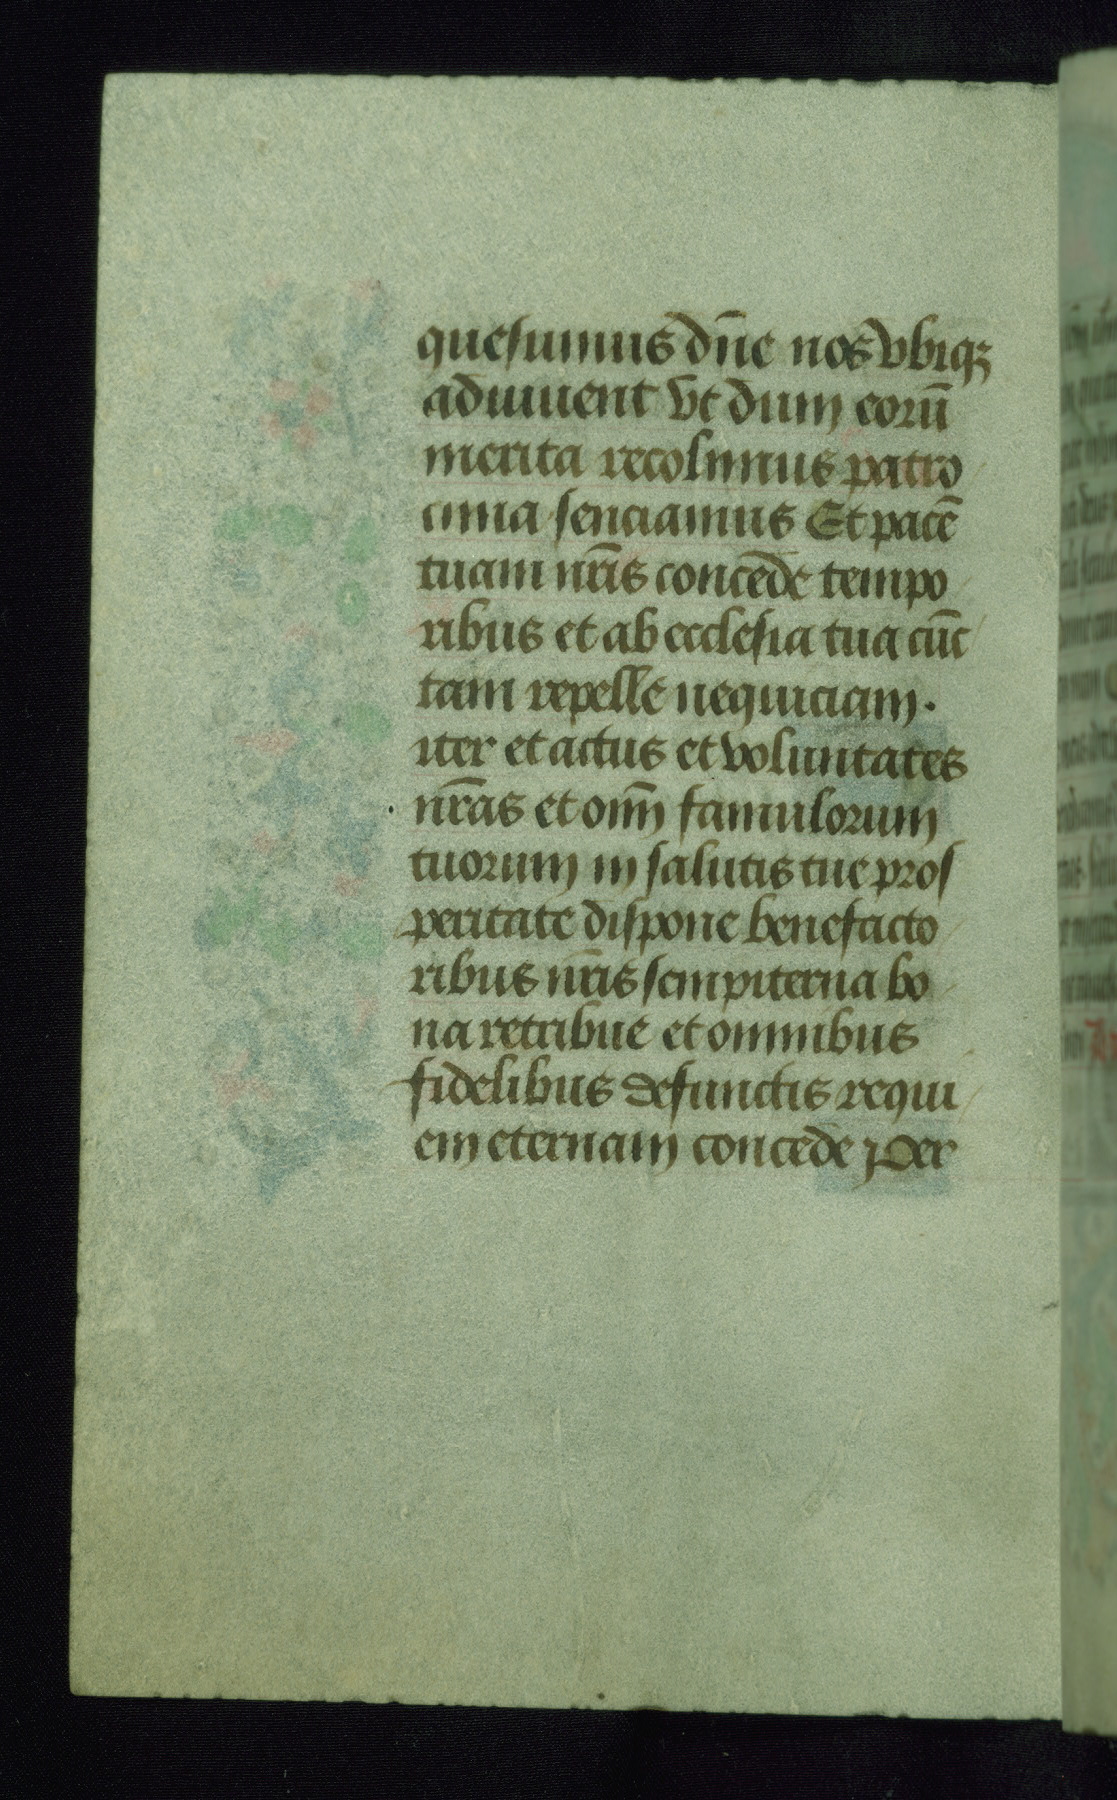 quesumus dñe nos vbiqꝫ
adiuuent vt dum eorū
merita recolimus patro
cinia senciamus Et pacē
tuam nr̄is concede tempo
ribus et ab ecclesia tua cūc
tam repelle nequiciam.
iter et actus et voluntates
nr̄as et om̄ famulorum
tuorum in salutis tue pros
peritate dispone benefacto
ribus nr̄is sempiterna bo
na retribue et omnibus
fidelibus defunctis requi
em eternam concede Per